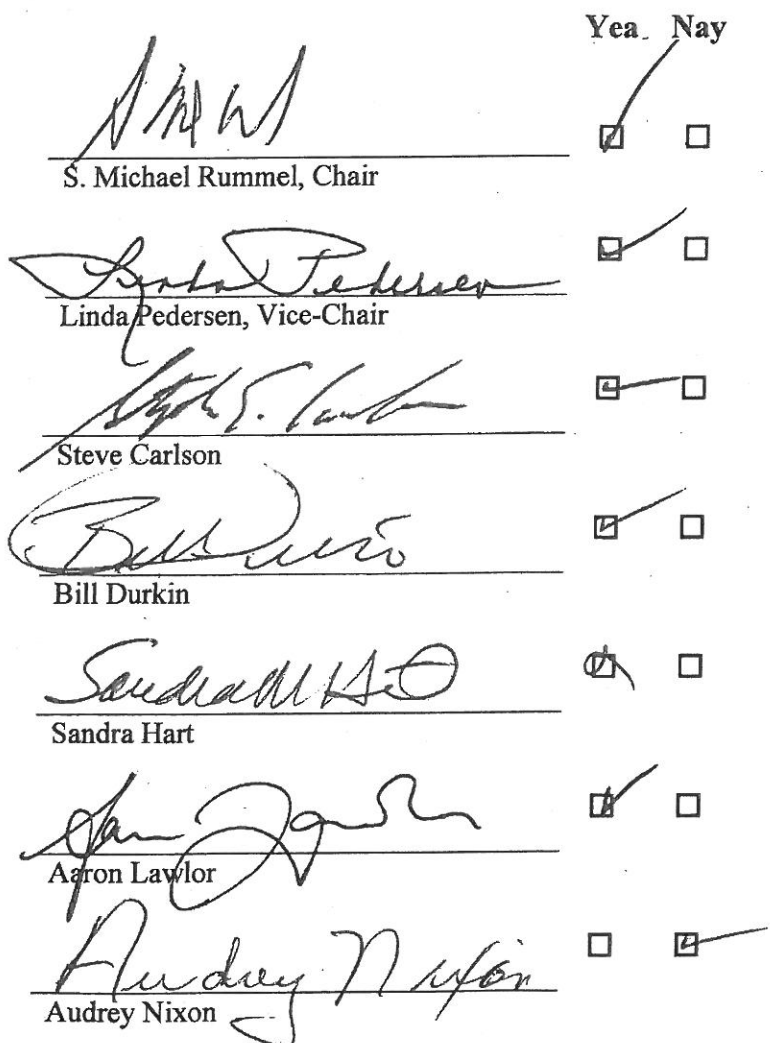 Yea Nay
S. Michael Rummel, Chair
Linda Pedersen
Linda Pedersen, Vice-Chair
Steve Carlson
Bill Durkin
Sandra M Hart
Sandra Hart
Aaron Lawlor
Audrey Nixon
Audrey Nixon